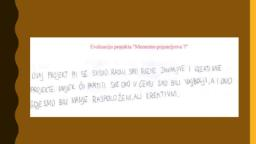 Evaluacija projekta "Memento prijateljstva 7"
OVAJ PROJEKT MI SE SVIDIO RADILI SMO RAZNE ZANIMLJIVE I KREATIVNE
PROJEKTE. UVIJEK ĆU PAMTITI SVE OVO U ČEMU SMO BILI NAJBOLJI, A I ONO
GDJE SMO BILI MANJE RASPOLOŽENI, ALI KREATIVNI.